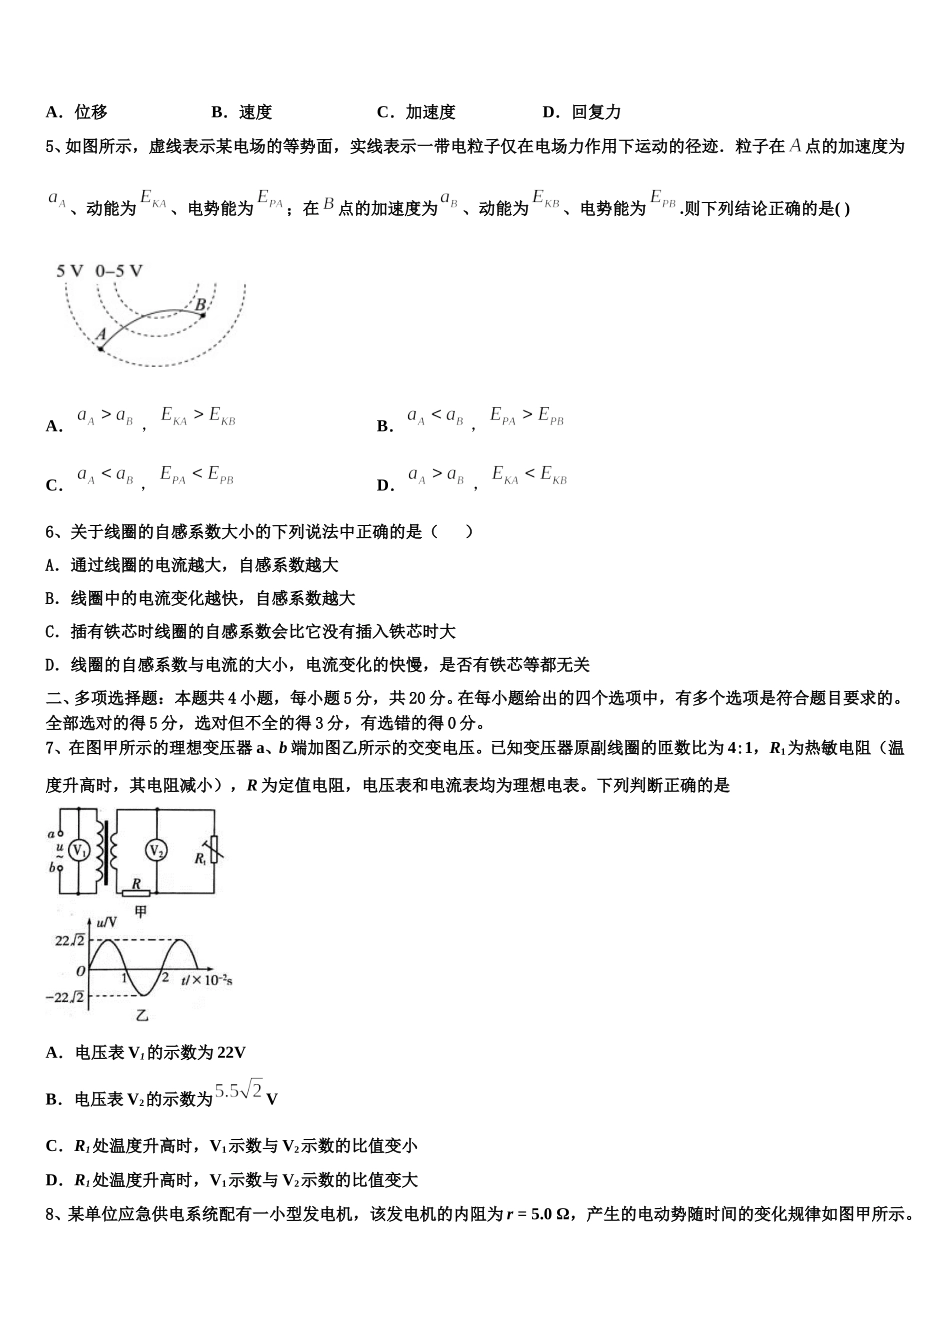 A．位移 B．速度 C．加速度 D．回复力
5、如图所示，虚线表示某电场的等势面，实线表示一带电粒子仅在电场力作用下运动的径迹．粒子在 A 点的加速度为
a_A、动能为 E_KA、电势能为 E_PA；在 B 点的加速度为 a_B、动能为 E_KB、电势能为 E_PB.则下列结论正确的是( )
5 V 0–5 V
B
A
A． a_A > a_B ， E_KA > E_KB B． a_A < a_B ， E_PA > E_PB
C． a_A < a_B ， E_PA < E_PB D． a_A > a_B ， E_KA < E_KB
6、关于线圈的自感系数大小的下列说法中正确的是（ ）
A．通过线圈的电流越大，自感系数越大
B．线圈中的电流变化越快，自感系数越大
C．插有铁芯时线圈的自感系数会比它没有插入铁芯时大
D．线圈的自感系数与电流的大小，电流变化的快慢，是否有铁芯等都无关
二、多项选择题：本题共 4 小题，每小题 5 分，共 20 分。在每小题给出的四个选项中，有多个选项是符合题目要求的。
全部选对的得 5 分，选对但不全的得 3 分，有选错的得 0 分。
7、在图甲所示的理想变压器 a、b 端加图乙所示的交变电压。已知变压器原副线圈的匝数比为 4:1，R₁为热敏电阻（温
度升高时，其电阻减小），R 为定值电阻，电压表和电流表均为理想电表。下列判断正确的是
a
u
~
b
V₁
V₂
R₁
R
甲
u/V
22√2
O
1
2
t/×10⁻²s
−22√2
乙
A．电压表 V₁的示数为 22V
B．电压表 V₂的示数为 5.5√2 V
C．R₁处温度升高时，V₁示数与 V₂示数的比值变小
D．R₁处温度升高时，V₁示数与 V₂示数的比值变大
8、某单位应急供电系统配有一小型发电机，该发电机的内阻为 r = 5.0 Ω，产生的电动势随时间的变化规律如图甲所示。